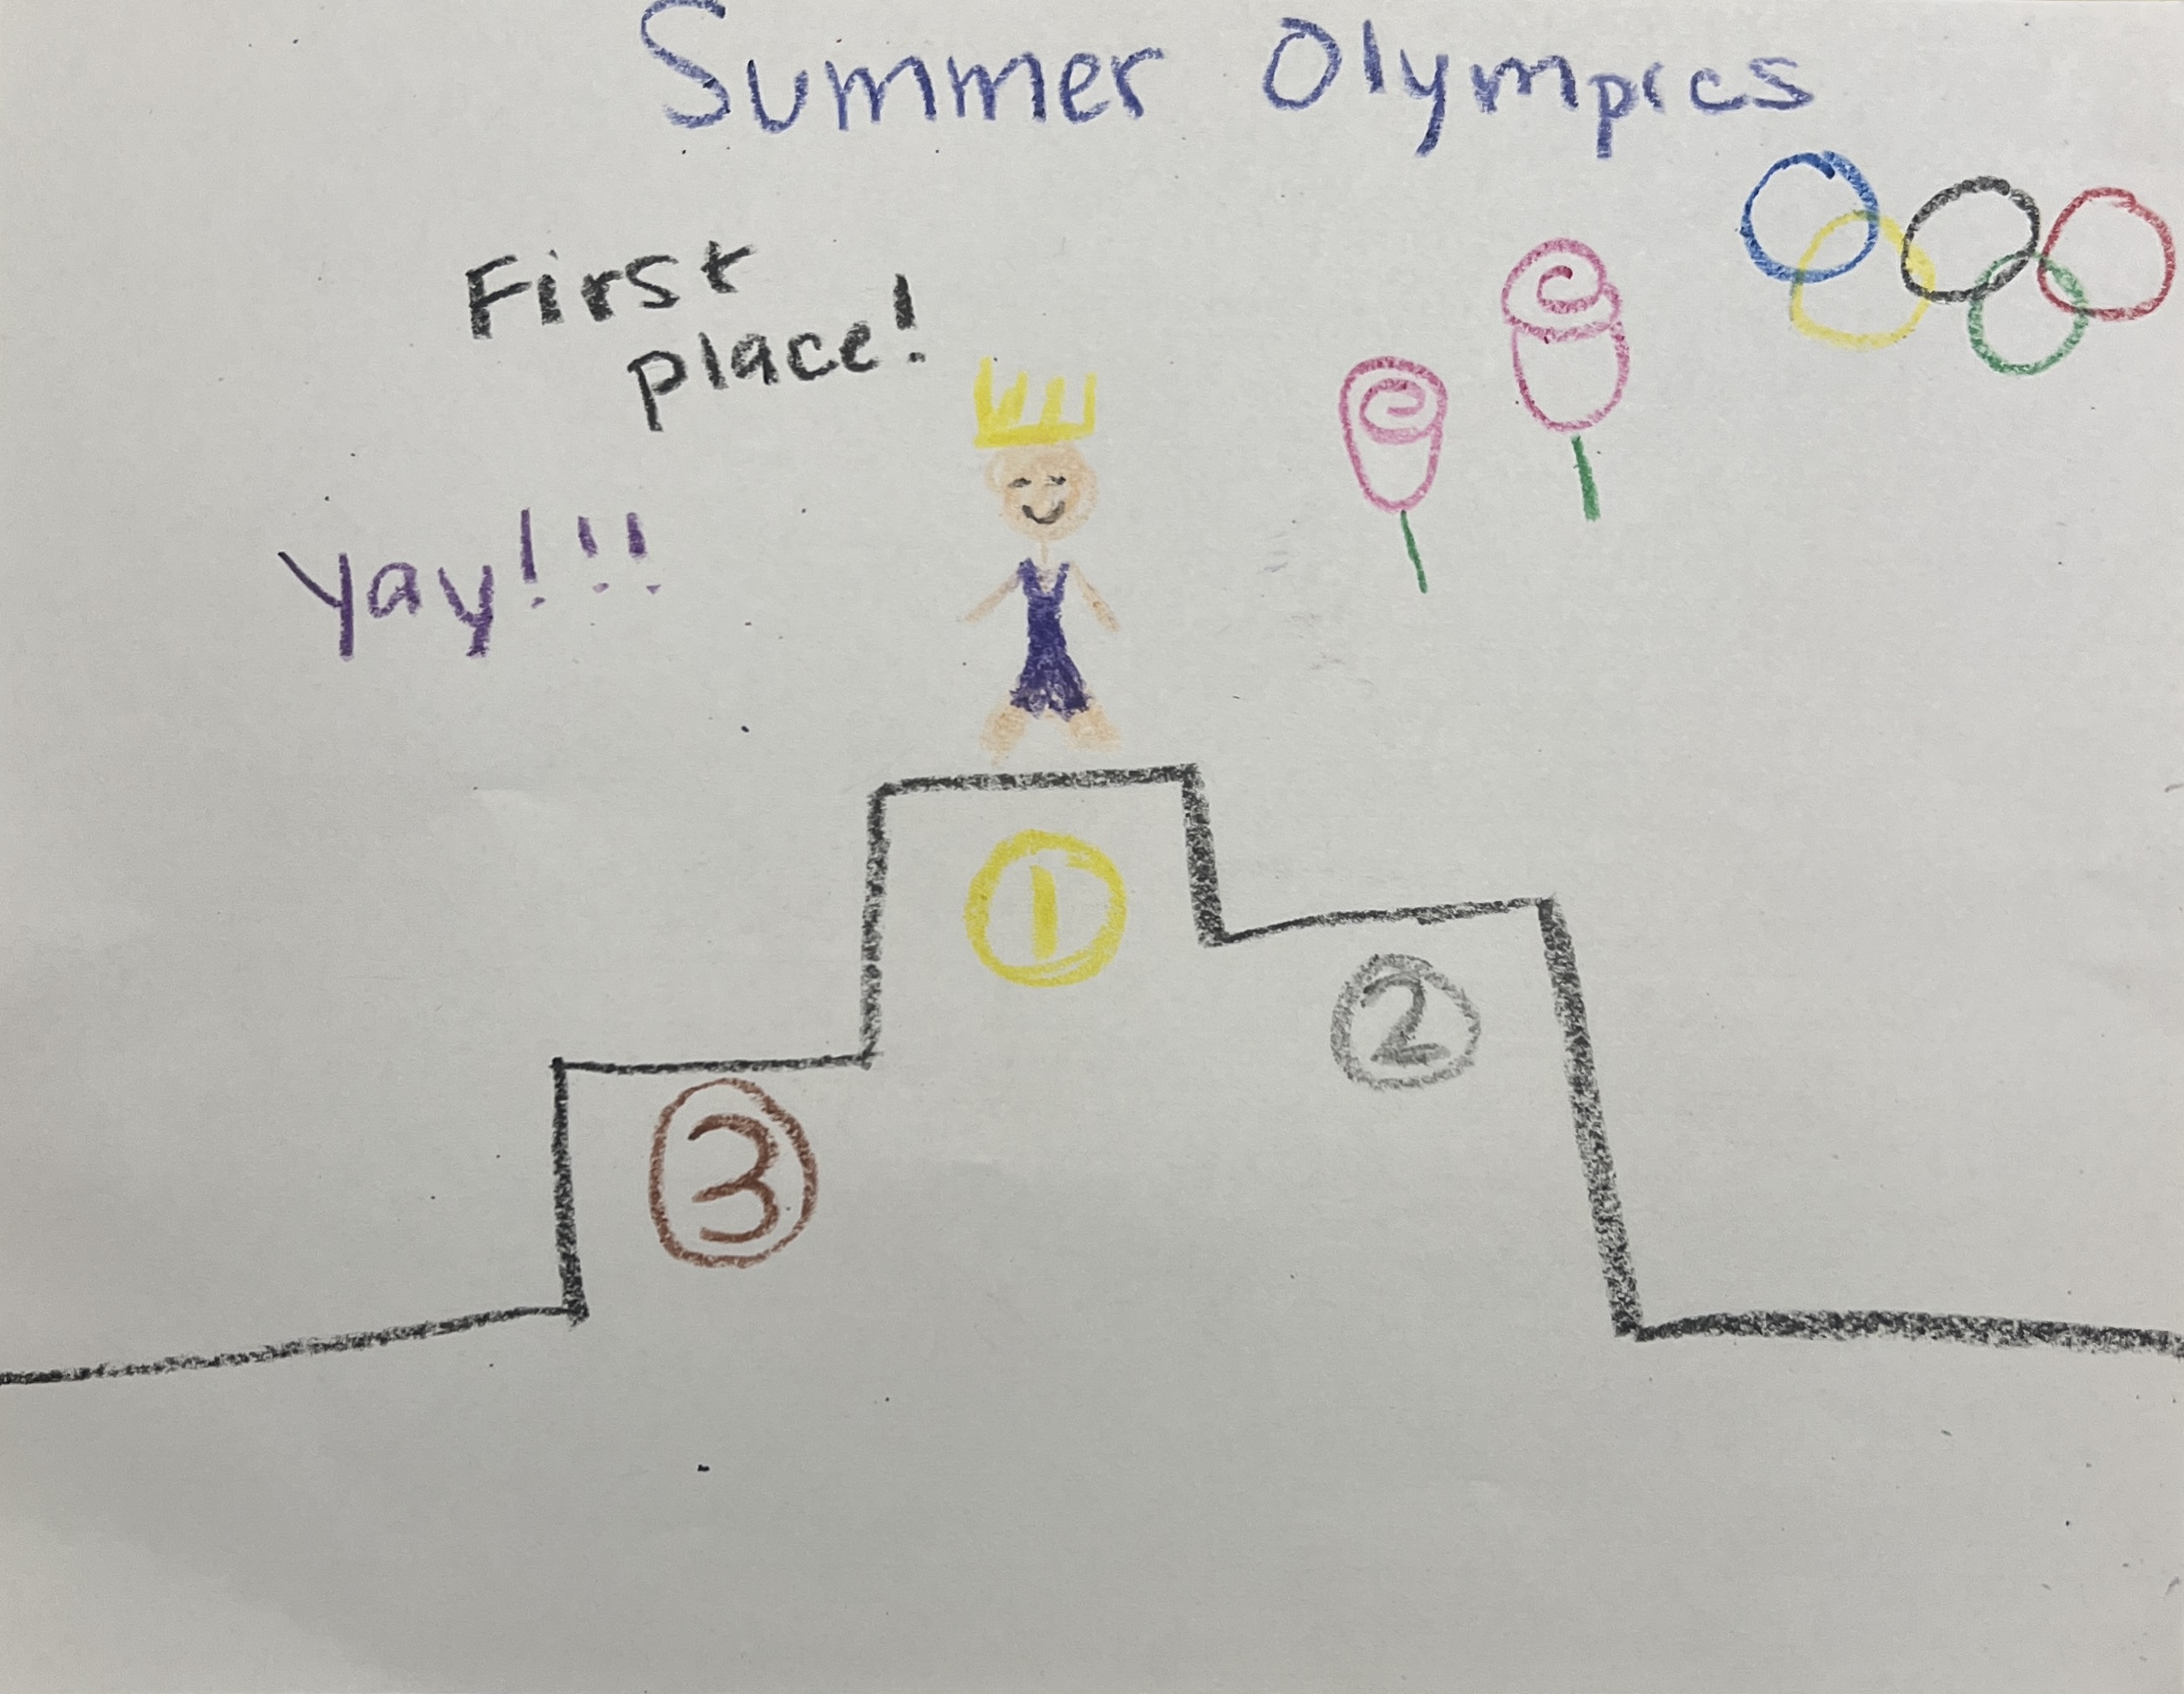 Summer Olympics
First
place!
Yay!!!
1
2
3